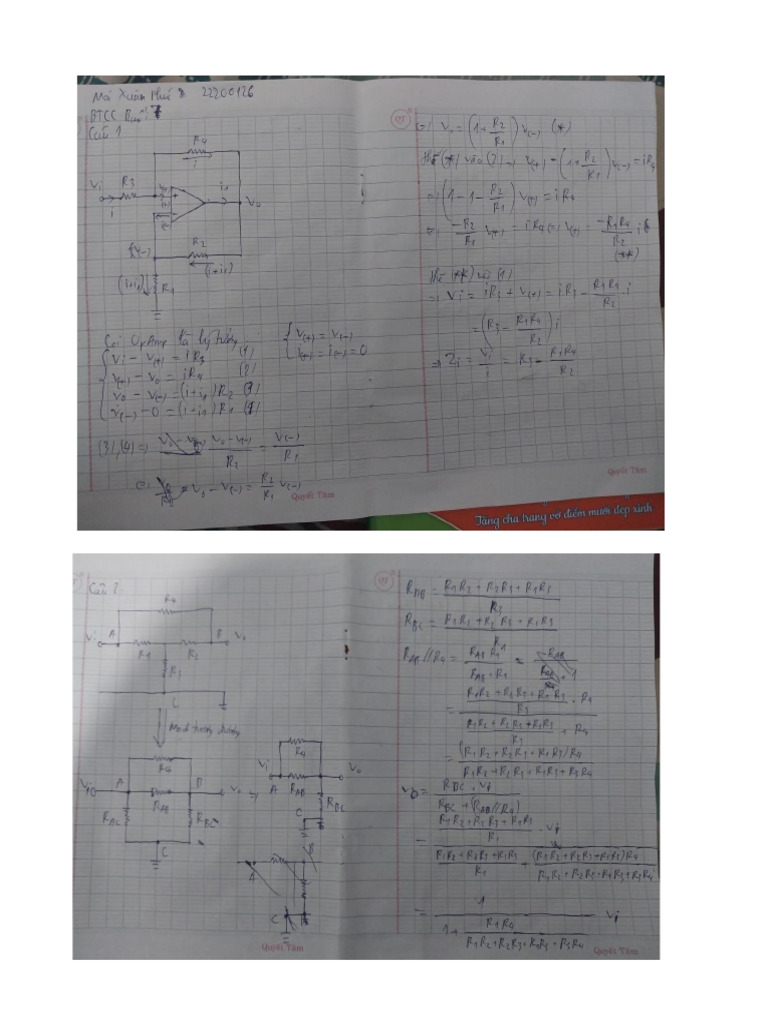 Mai Xuân Phú 22200126
BTCC Buổi 7
Câu 1
R4
i
Vi
R3
i
i1
Vo
V(-)
R2
(i+i1)
(i+i1)
R1
Coi OpAmp là lý tưởng
{ V(+) = V(-)
i(+) = i(-) = 0
{ Vi - V(+) = iR3 (1)
V(+) - Vo = iR4 (2)
Vo - V(-) = (i+i1)R2 (3)
V(-) - 0 = (i+i1)R1 (4)
(3),(4) => (Vo - V(-))/R2 = V(-)/R1
<=> Vo - V(-) = R2/R1 V(-)
Quyết Tâm
<=> Vo = (1 + R2/R1) V(-) (*)
Thế (*) vào (2) => V(+) - (1 + R2/R1) V(-) = iR4
<=> (1 - 1 - R2/R1) V(+) = iR4
<=> -R2/R1 V(+) = iR4 <=> V(+) = -R1R4/R2 i
(**)
Thế (**) vào (1)
=> Vi = iR3 + V(+) = iR3 - R1R4/R2 i
= (R3 - R1R4/R2) i
=> Zi = Vi/i = R3 - R1R4/R2
Quyết Tâm
Tặng cha trang vở điểm mười đẹp xinh
Câu 2
R4
Vi A R1 R2 B Vo
R3
C
Mạch tương đương
R4
Vi A B Vo =>
RAB
RAC RBC
C
R4
Vi Vo
A RAB
RBC
C
A
C
Quyết Tâm
RAB = (R1R2 + R2R3 + R1R3)/R3
RBC = (R1R2 + R2R3 + R1R3)/R1
RAB//R4 = 
= ((R1R2 + R2R3 + R1R3)/R3 . R4)/((R1R2 + R2R3 + R1R3)/R3 + R4)
= ((R1R2 + R2R3 + R1R3)R4)/(R1R2 + R2R3 + R1R3 + R3R4)
Vo = (RBC . Vi)/(RBC + (RAB//R4))
= ((R1R2 + R2R3 + R1R3)/R1 . Vi)/((R1R2 + R2R3 + R1R3)/R1 + ((R1R2 + R2R3 + R1R3)R4)/(R1R2 + R2R3 + R1R3 + R3R4))
= 1/(1 + R1R4/(R1R2 + R2R3 + R1R3 + R3R4)) Vi
Quyết Tâm